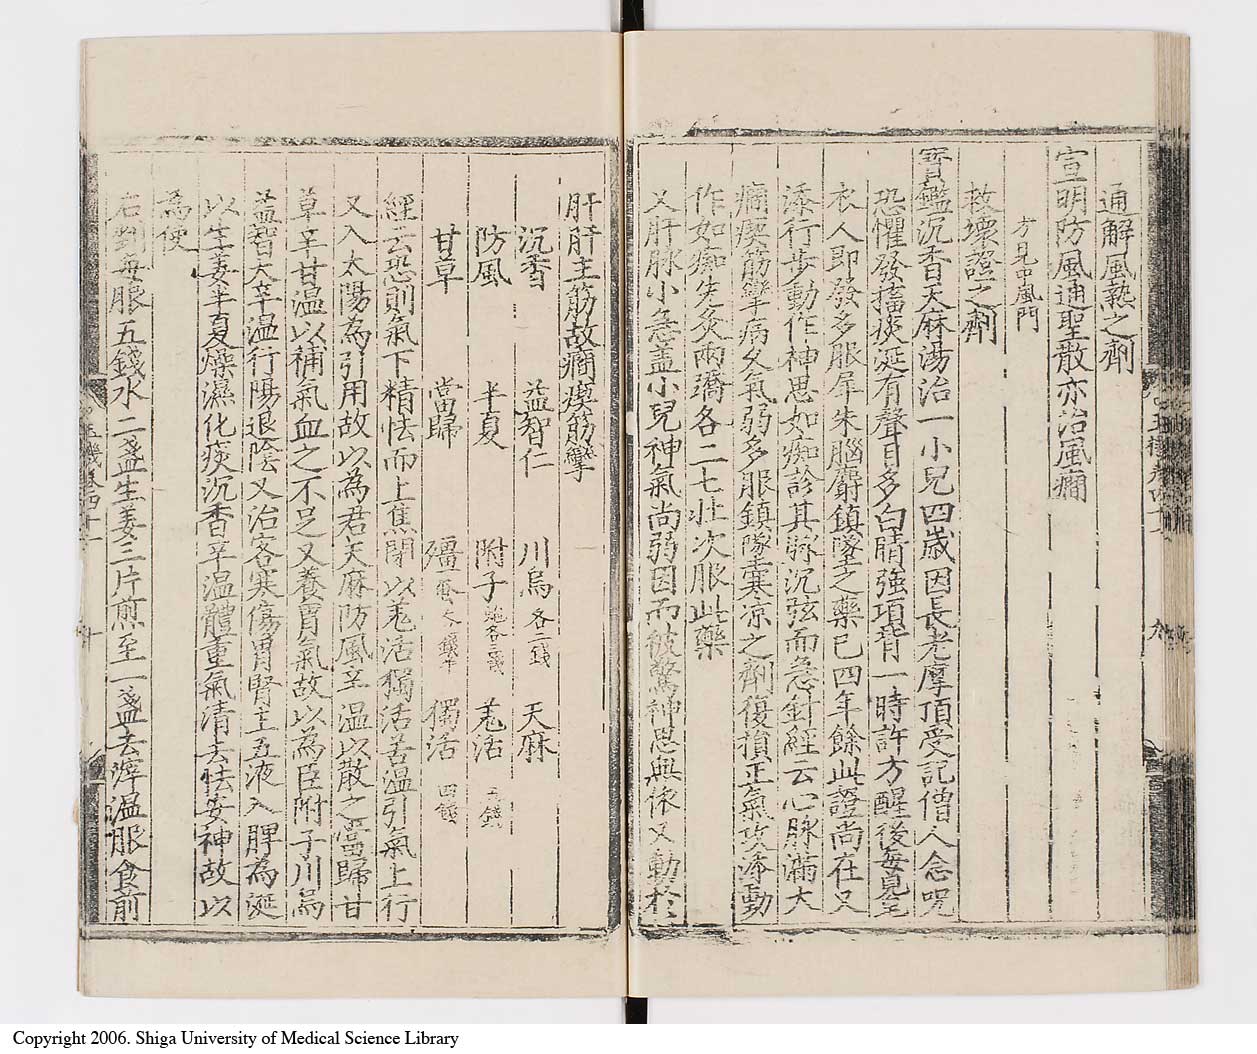 通解風熱之劑
宣明防風通聖散亦治風癇
方見中風門
救壞證之劑
寶鑑沉香天麻湯治一小兒四歲因長老摩頂受記僧人念咒
恐懼發搐痰涎有聲目多白睛強項背一時許方醒後每見皂
衣人即發多服犀朱腦麝鎮墜之藥已四年餘此證尚在又
添行步動作神思如痴診其脉沉弦而急針經云心脉滿大
癇瘈筋攣病久氣弱多服鎮墜寒凉之劑復損正氣次添動
作如痴先灸兩蹻各二七壯次服此藥
又肝脉小急盖小兒神氣尚弱因而被驚神思無依又動於
肝肝主筋故癇瘈筋攣
沉香 益智仁 川烏各二錢 天麻
防風 半夏 附子炮各三錢 羌活五錢
甘草 當歸 殭蠶各一錢半 獨活四錢
經云恐則氣下精怯而上焦閉以羌活獨活苦温引氣上行
又入太陽為引用故以為君天麻防風辛温以散之當歸甘
草辛甘温以補氣血之不足又養胃氣故以為臣附子川烏
益智大辛温行陽退陰又治客寒傷胃腎主五液入脾為涎
以生姜半夏燥濕化痰沉香辛温體重氣清去怯安神故以
為使
右剉每服五錢水二盞生姜三片煎至一盞去滓温服食前
玉機卷四十一
Copyright 2006. Shiga University of Medical Science Library